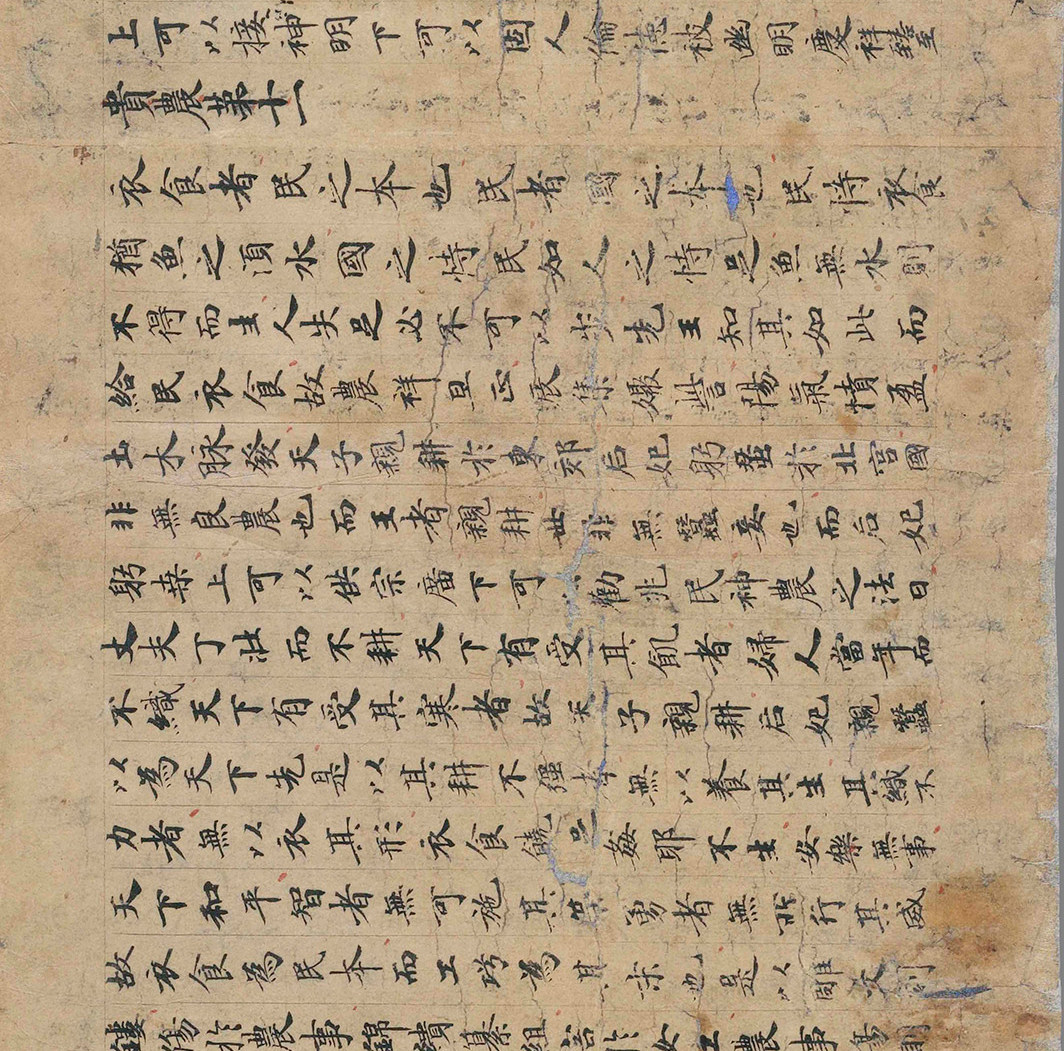 上可以接神明下可以固人倫德被幽明慶祥臻至
貴農第十一
衣食者民之本也民者國之本也民恃衣食
猶魚之湏水國之恃民如人之恃足魚無水則
不得而生人失足必不可以步先王知其如此而
給民衣食故農祥旦正辰集娵訾陽氣憤盈
土木脉發天子親耕於東郊后妃躬蚕於北宮國
非無良農也而王者親耕世非無蠶妾也而后妃
躬桒上可以供宗廟下可以勸兆民神農之法曰
丈夫丁壮而不耕天下有受其飢者婦人當年而
不織天下有受其寒者故天子親耕后妃親蠶
以為天下先是以其耕不强者無以養其生其織不
力者無以衣其形衣食饒足姦耶不生安樂無事
天下和平智者無可施其策勇者無所行其威
故衣食為民本而工巧為其末也是以雕文刻
鏤傷於農事錦繢纂組害於女工農事傷則